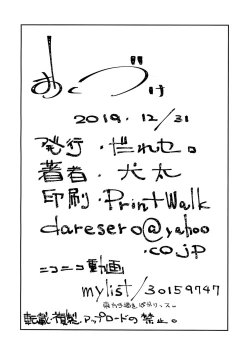 おくづけ
2019.12/31
発行・だれせ。
著者・犬太
印刷・PrintWalk
daresero@yahoo
.co.jp
ニコニコ動画
mylist/30159747
転載・複製・アップロードの禁止。